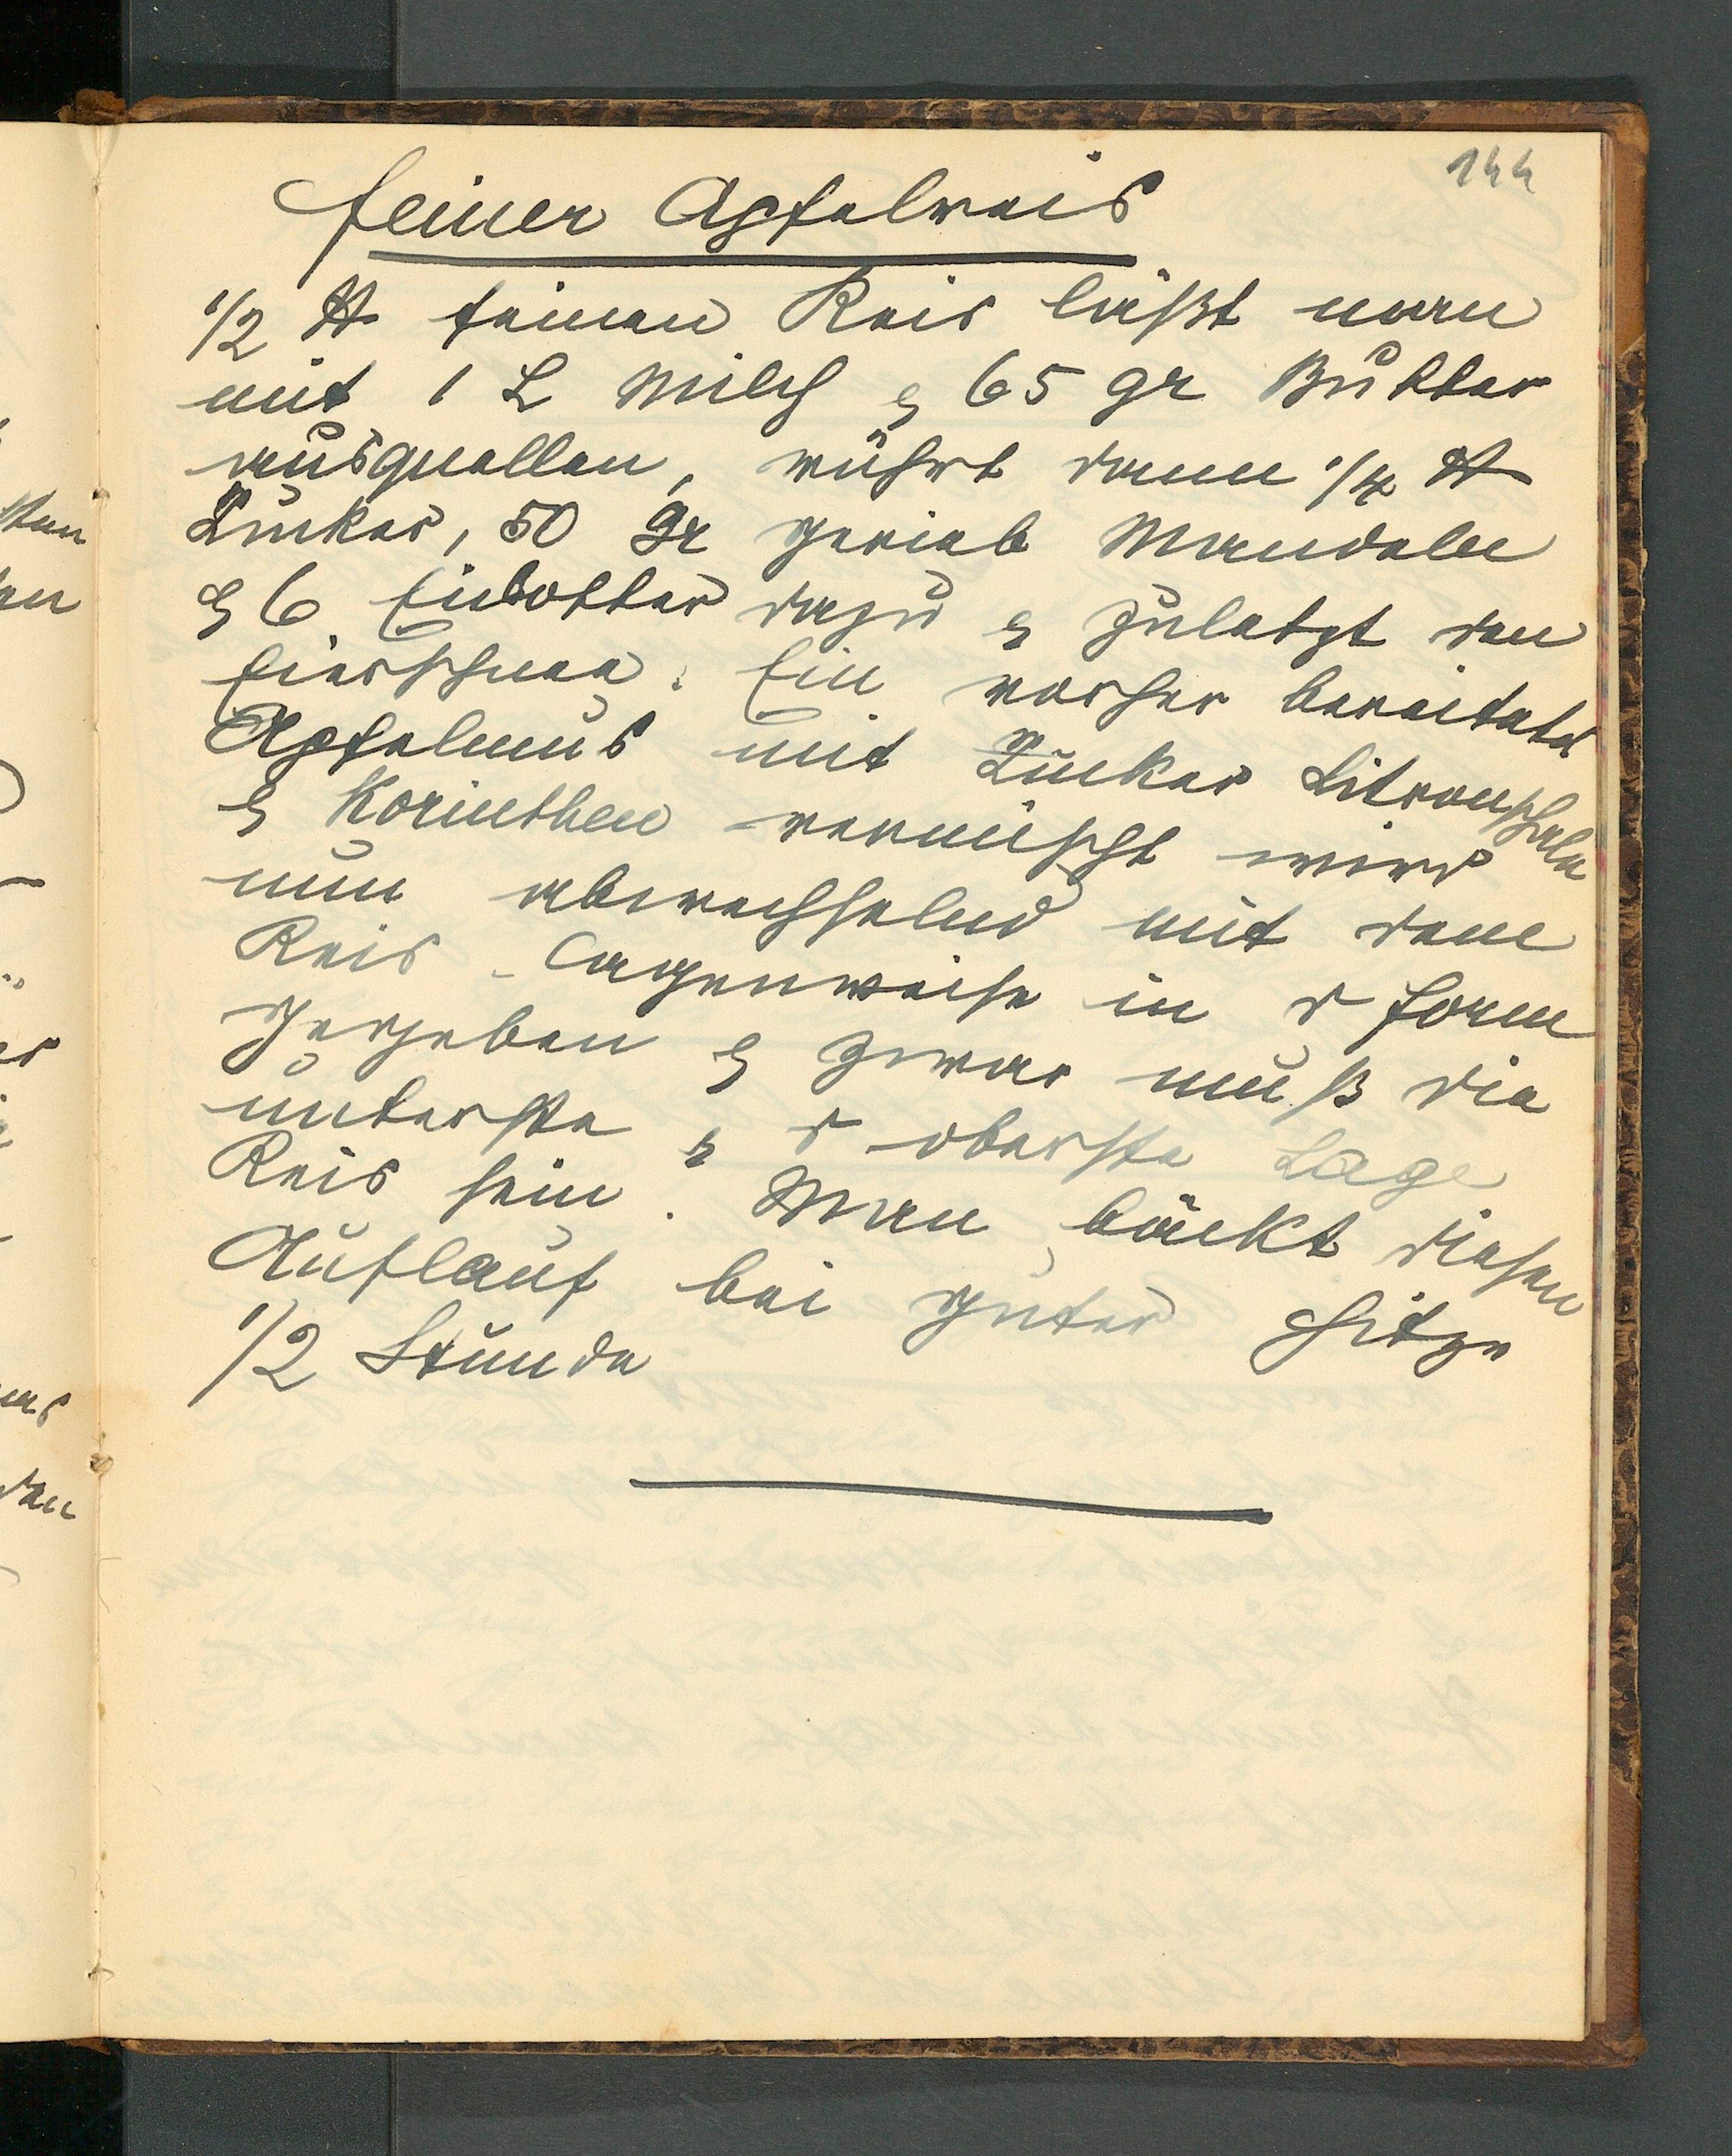 144
feiner Apfelreis
1/2 ℔ feinen Reis läßt man
mit 1 L Milch & 65 gr Butter
ausquellen, rührt dann 1/4 ℔
Zucker, 50 Gr gerieb Mandeln
& 6 Eidotter dazu & zuletzt den
Eierschnee. Ein vorher bereitetes
Apfelmus mit Zucker Citronschale
& Korinthen vermischt wird
nun abwechselnd mit dem
Reis lagenweise in d Form
gegeben & zwar muß die
unterste & d oberste Lage
Reis sein. Man bäckt diesen
Auflauf bei guter Hitze
1/2 Stunde